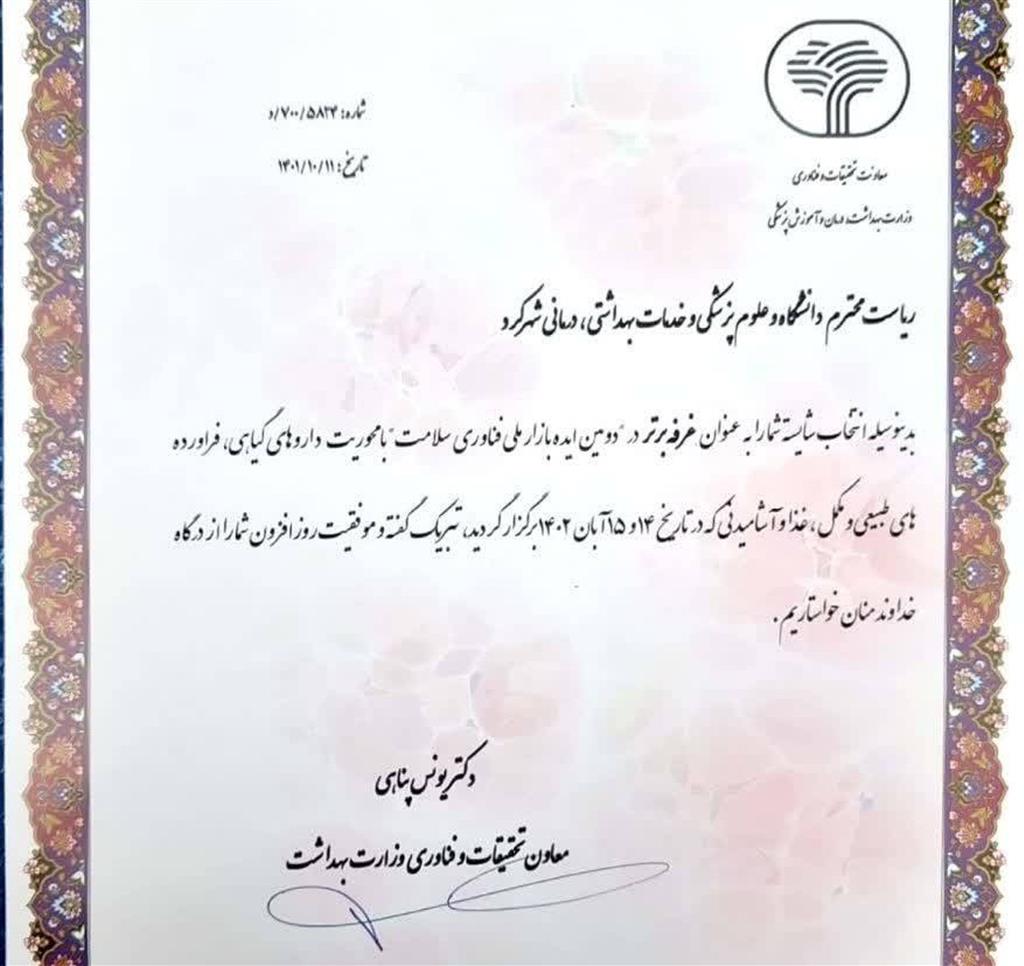 شماره: ۷۰۰/۵۸۲۴/د
تاریخ: ۱۴۰۱/۱۰/۱۱
معاونت تحقیقات و فناوری
وزارت بهداشت، درمان و آموزش پزشکی
ریاست محترم دانشگاه و علوم پزشکی و خدمات بهداشتی، درمانی شهرکرد
بدینوسیله انتخاب شایسته شما را به عنوان غرفه برتر در "دومین ایده بازار ملی فناوری سلامت" با محوریت داروهای گیاهی، فراورده
های طبیعی و مکمل، غذا و آشامیدنی که در تاریخ ۱۴ و ۱۵ آبان ۱۴۰۲ برگزار گردید، تبریک گفته و موفقیت روزافزون شما را از درگاه
خداوند منان خواستاریم.
دکتر یونس پناهی
معاون تحقیقات و فناوری وزارت بهداشت